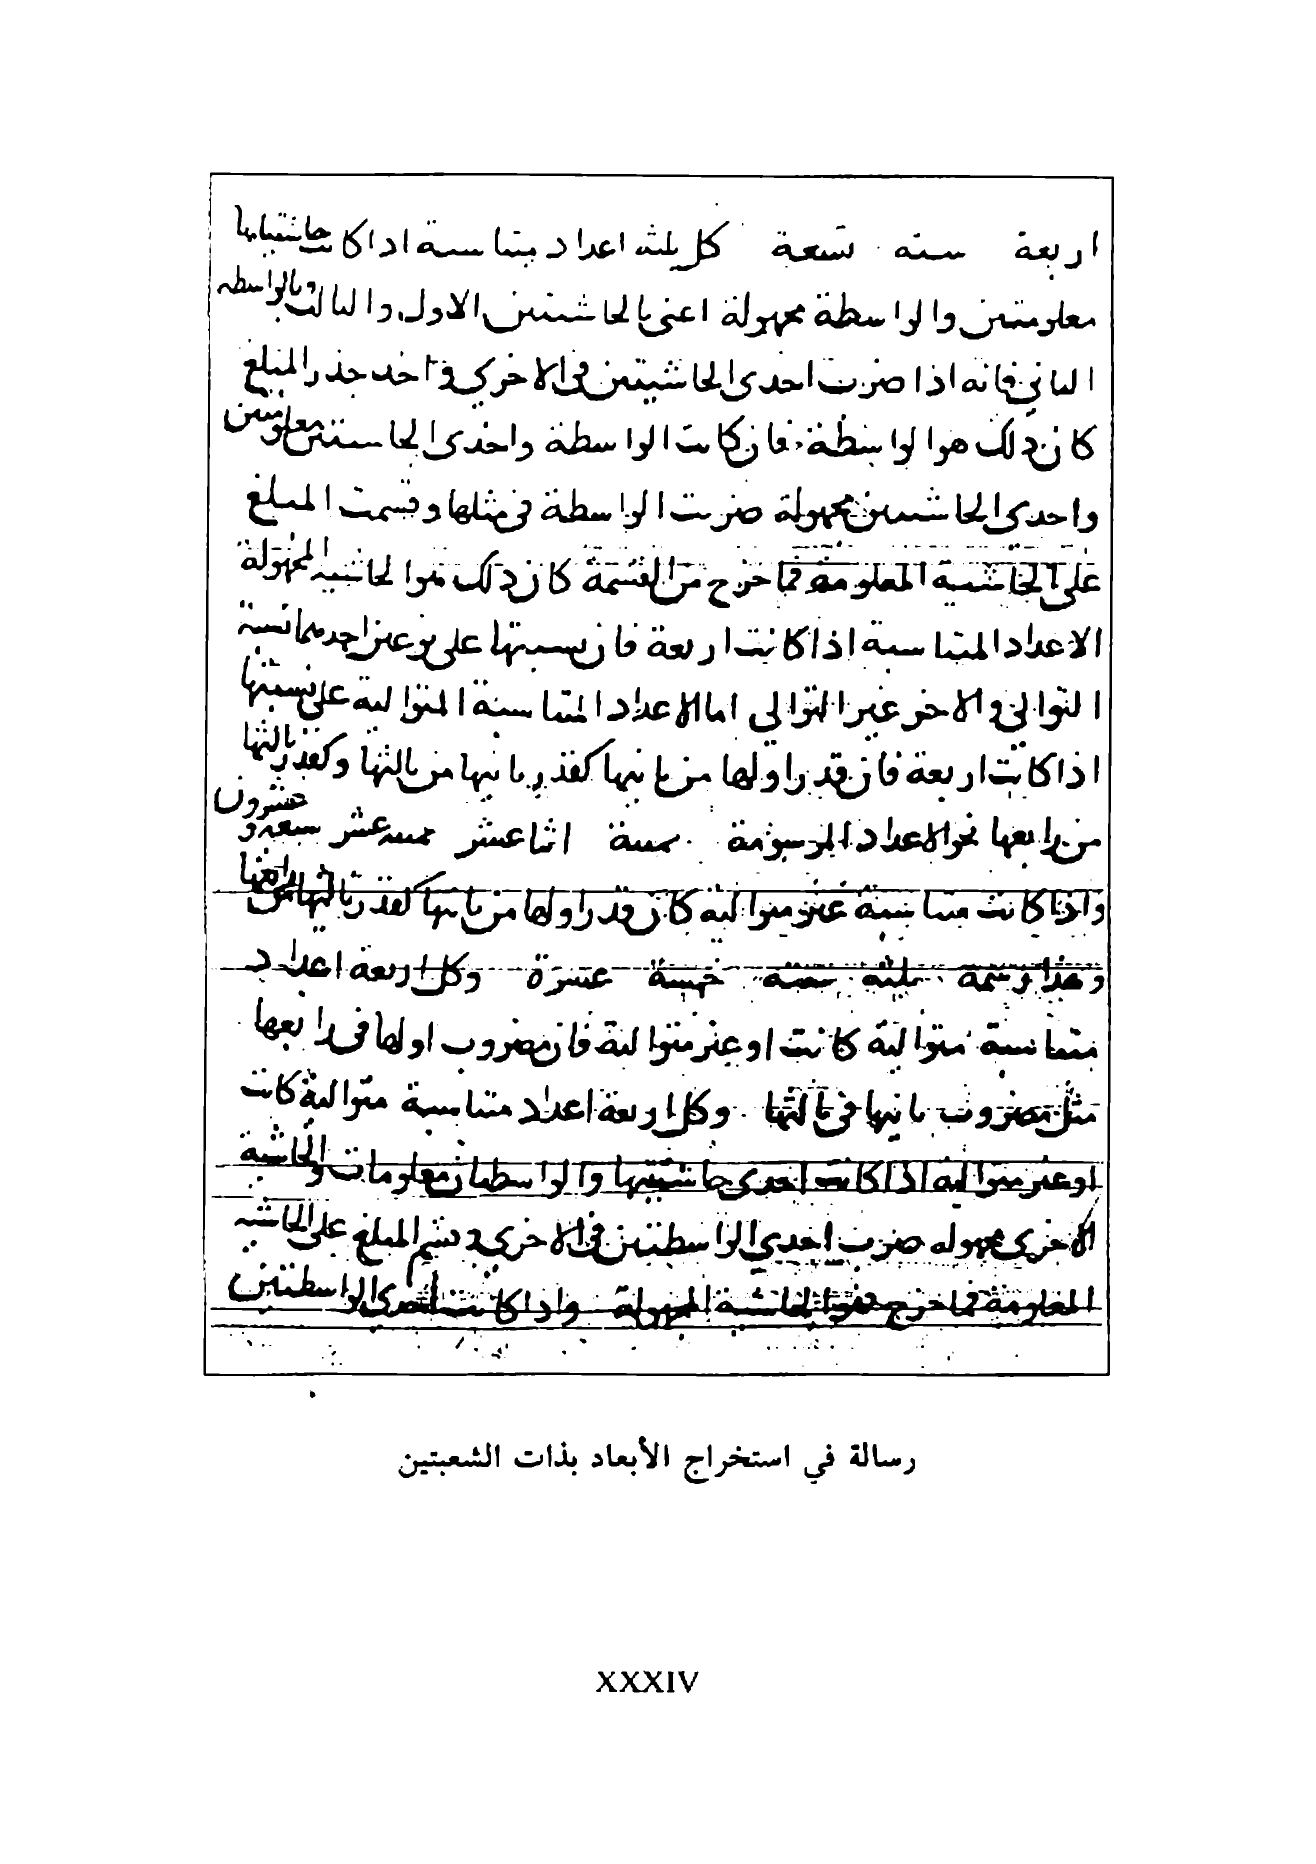 اربعة سته تسعة كل ثلثة اعداد متناسبة اذا كانت حاشيتاها
معلومتين والواسطة مجهولة اعنى بالحاشيتين الاول والثالث وبالواسطه
الثاني فانه اذا ضربت احدى الحاشيتين فى الاخرى واخذ جذر المبلغ
كان ذلك هو الواسطة فان كانت الواسطة واحدى الحاشيتين معلومتين
واحدى الحاشيتين مجهولة ضربت الواسطة فى مثلها وقسمت المبلغ
على الحاشية المعلومة فما خرج من القسمة كان ذلك هو الحاشيه المجهولة
الاعداد المتناسبة اذا كانت اربعة فان نسبتها على نوعين احدهما نسبة
التوالى والاخر غير التوالى اما الاعداد المتناسبة المتوالية على نسبتها
اذا كانت اربعة فان قدر اولها من ثانيها كقدر ثانيها من ثالثها وكقدر ثالثها
من رابعها نحو الاعداد المرسومة ثمنية اثنا عشر ثمنيه عشر سبعه وعشرون
واذا كانت متناسبة غير متوالية كان قدر اولها من ثانيها كقدر ثالثها من رابعها
وهذا رسمه ثلثه ستة خمسة عشرة وكل اربعة اعداد
متناسبة متوالية كانت او غير متوالية فان مضروب اولها فى رابعها
مثل مضروب ثانيها فى ثالثها وكل اربعة اعداد متناسبة متوالية كانت
او غير متوالية اذا كانت احدى حاشيتيها والواسطتان معلومات والحاشية
الاخرى مجهوله ضرب احدى الواسطتين فى الاخرى وقسم المبلغ على الحاشيه
المعلومة فما خرج فهو الحاشية المجهولة واذا كانت احدى الواسطتين
رسالة في استخراج الأبعاد بذات الشعبتين
XXXIV